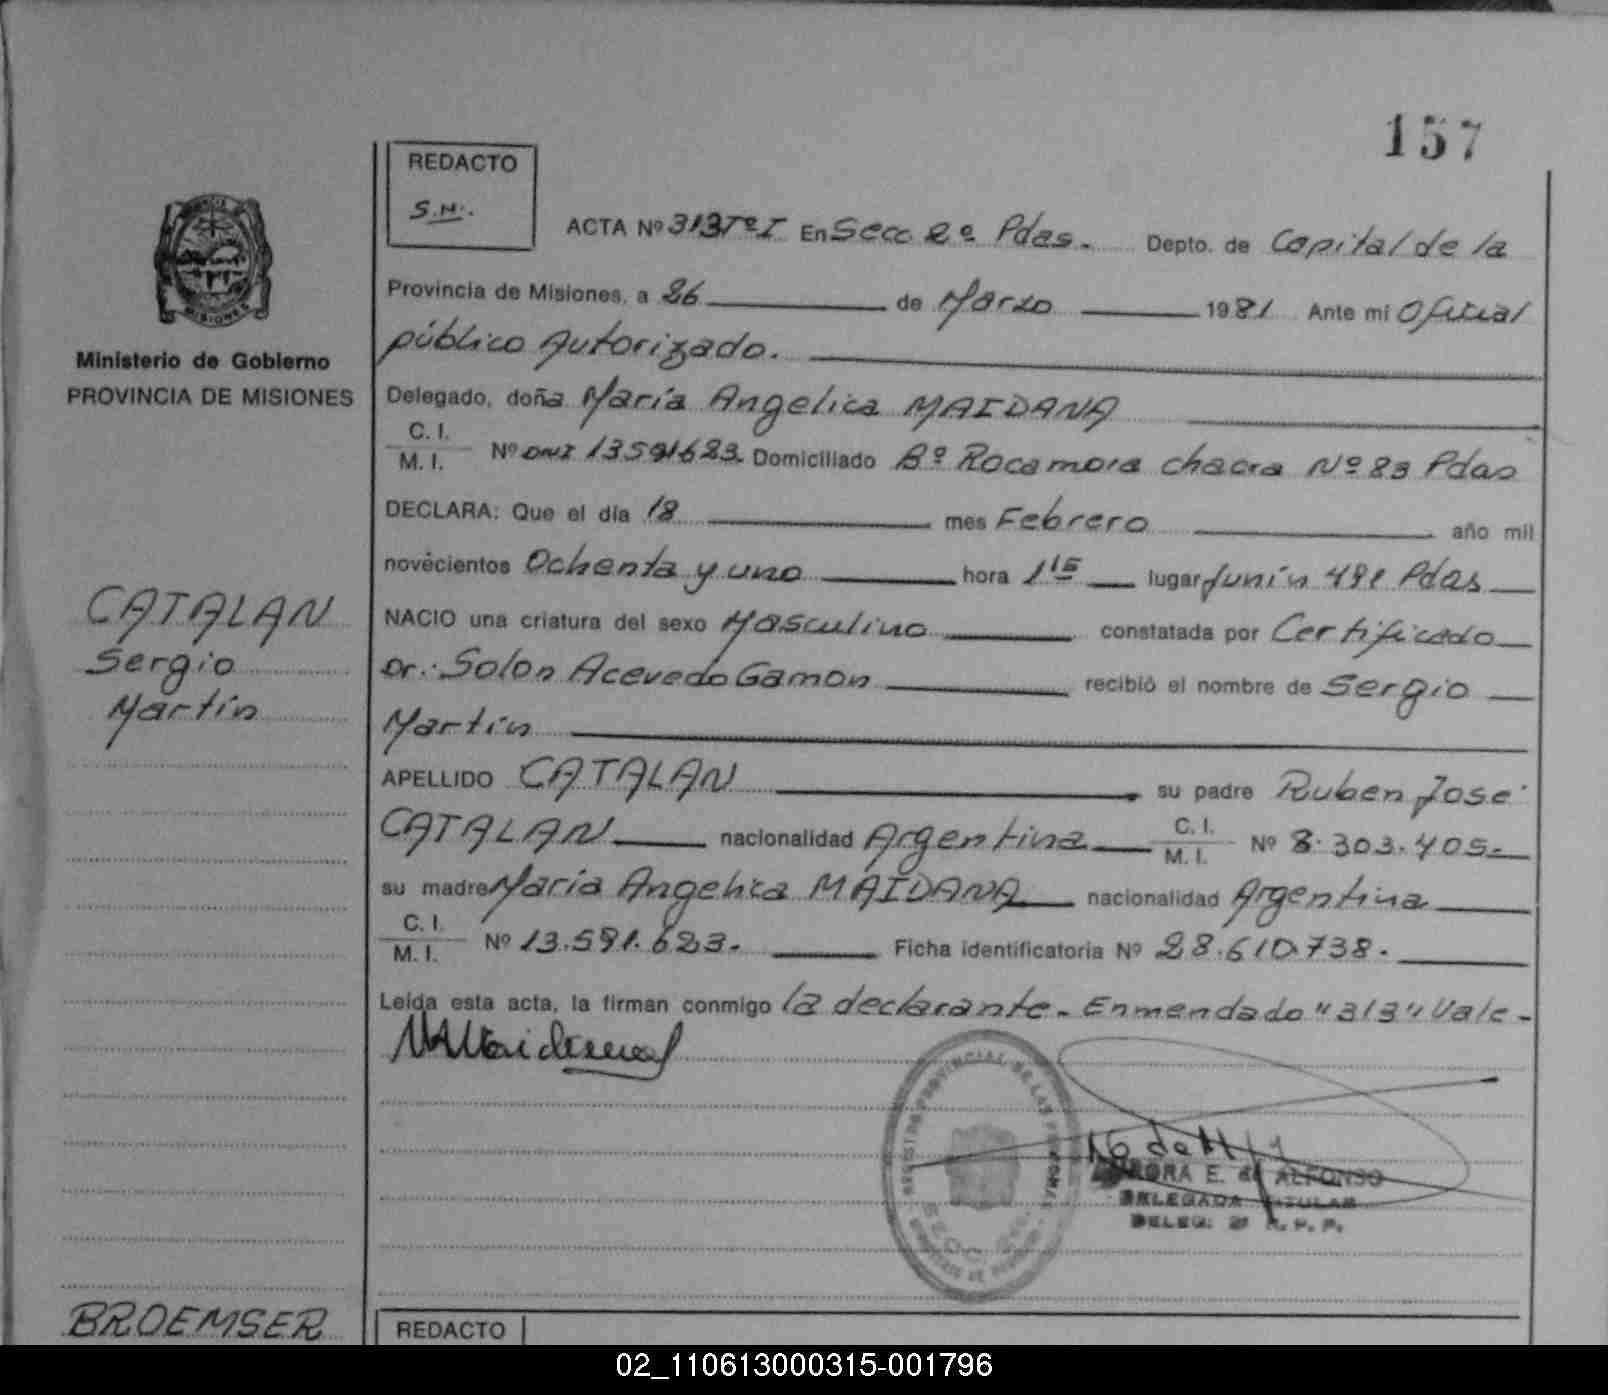 157
REDACTO
S.N.
ACTA Nº 313 Tº I En Secc 2º Pdas. Depto. de Capital de la
Provincia de Misiones, a 26 de Marzo 1981 Ante mi Oficial
público Autorizado.
MISIONES
Ministerio de Gobierno
PROVINCIA DE MISIONES
Delegado, doña María Angelica MAIDANA
C. I.
M. I. Nº DNI 13591623. Domiciliado Bº Rocamora chacra Nº 83 Pdas
DECLARA: Que el día 18 mes Febrero año mil
novecientos Ochenta y uno hora 1 15 lugar Junín 491 Pdas
CATALAN
Sergio
Martín
NACIO una criatura del sexo Masculino constatada por Certificado
Dr.: Solon Acevedo Gamon recibió el nombre de Sergio
Martín
APELLIDO CATALAN su padre Ruben José
CATALAN nacionalidad Argentina C. I.
M. I. Nº 8.303.405.
su madre María Angelica MAIDANA nacionalidad Argentina
C. I.
M. I. Nº 13.591.623. Ficha identificatoria Nº 28.610.738.
Leída esta acta, la firman conmigo la declarante. Enmendado "313" Vale.
REGISTRO PROVINCIAL DE LAS PERSONAS
SECC. 2º
E. de ALFONSO
DELEGADA TITULAR
DELEG. 2º R. P. P.
BROEMSER
REDACTO
02_110613000315-001796